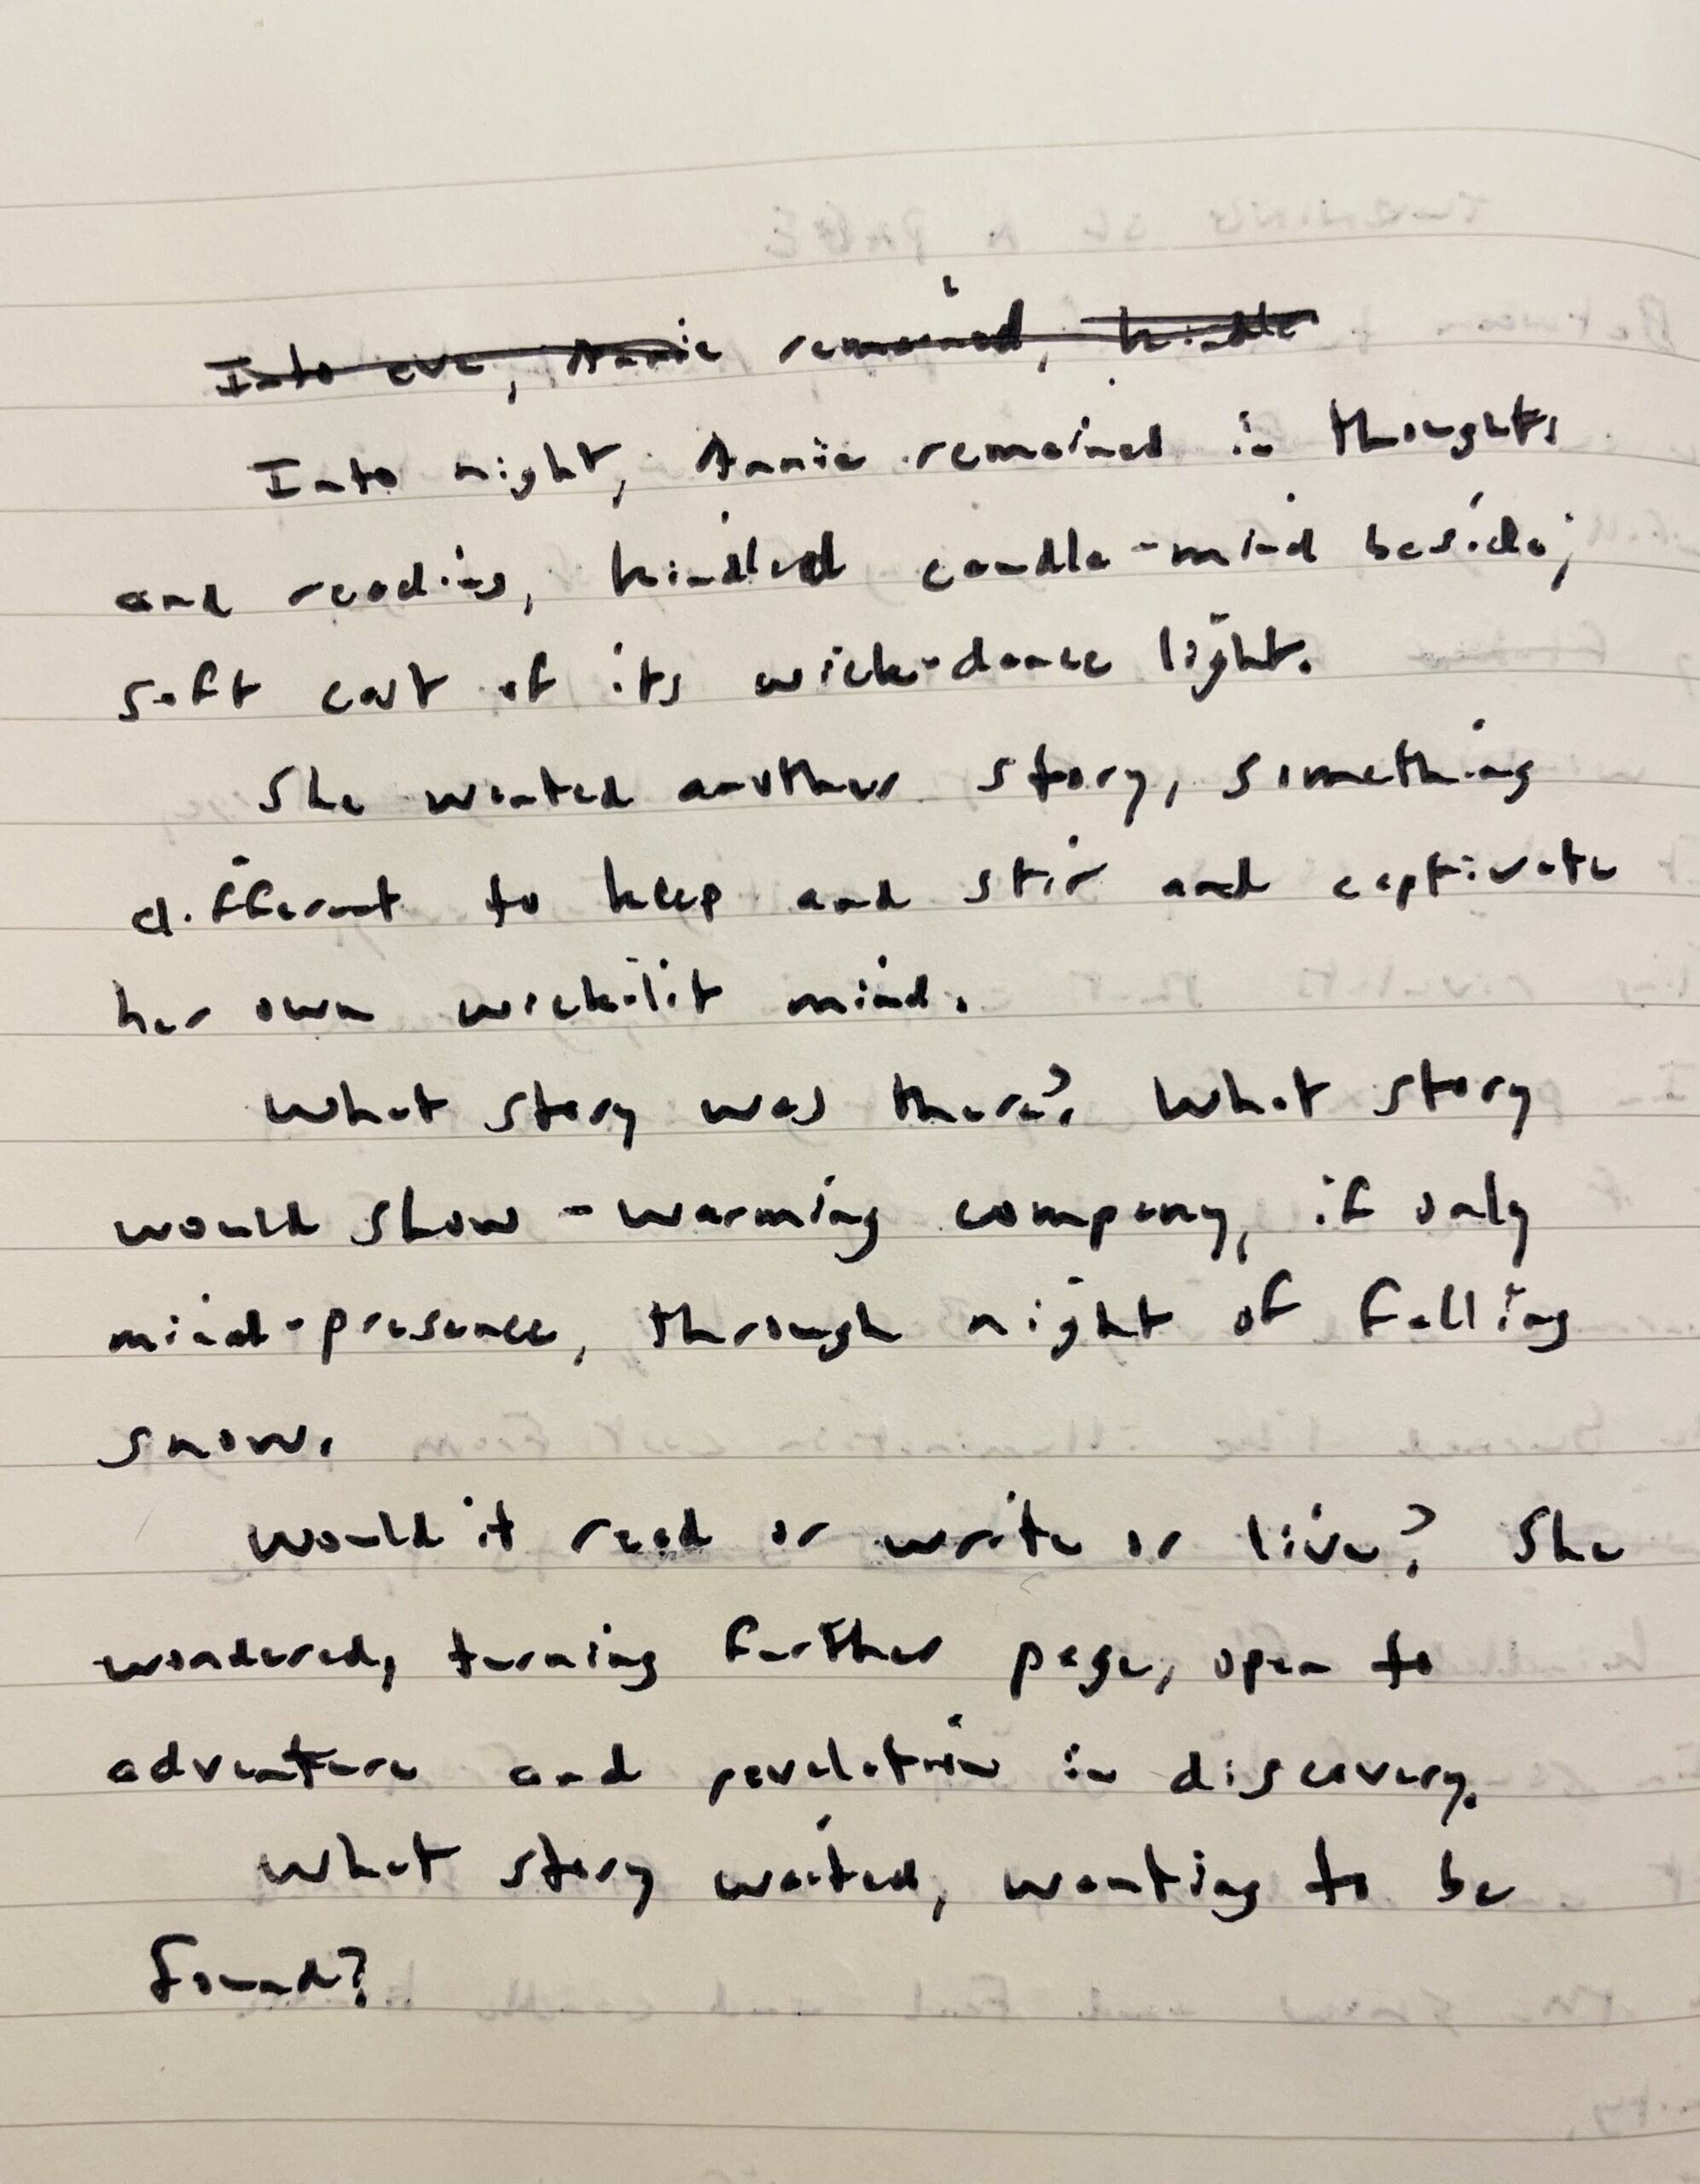 Into eve, Annie remained, kindle
Into night, Annie remained in thoughts
and reading, kindled candle-mind beside;
soft cast of its wick-dance light.
She wanted another story, something
different to keep and stir and captivate
her own wick-lit mind.
What story was there? What story
would show-warming company, if only
mind-presence, through night of falling
snow.
Would it read or write or live? She
wondered, turning further page, open to
adventure and revelation in discovery.
What story waited, wanting to be
found?